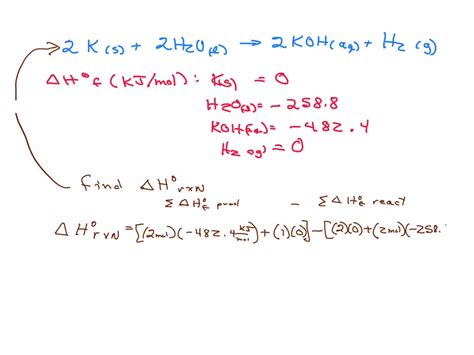 2 K(s) + 2H2O(l) → 2 KOH(aq) + H2 (g)
ΔH°f (KJ/mol): K(s) = 0
H2O(l) = -258.8
KOH(aq) = -482.4
H2 (g) = 0
find ΔH°rxn
Σ ΔH°f prod - Σ ΔH°f react
ΔH°rxn = [(2mol)(-482.4 KJ/mol) + (1)(0)] - [(2)(0) + (2mol)(-258.